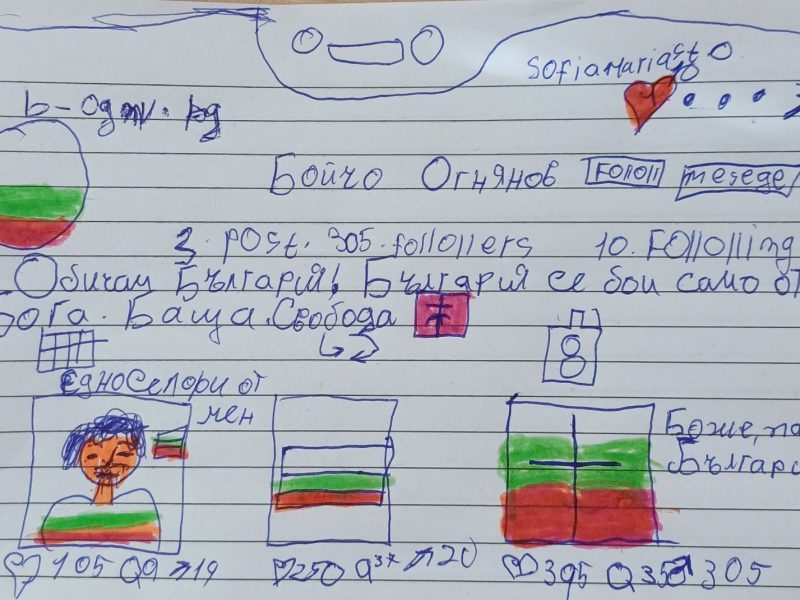 SofiaMaria
Бойчо Огнянов Follow mesege
3. post. 305. followers 10. Following
Обичам България! България се бои само от
Бога. Баща. Свобода
8
от
мен
Боже, па
Българи
105 Q9 19
250 Q37 20
395 305